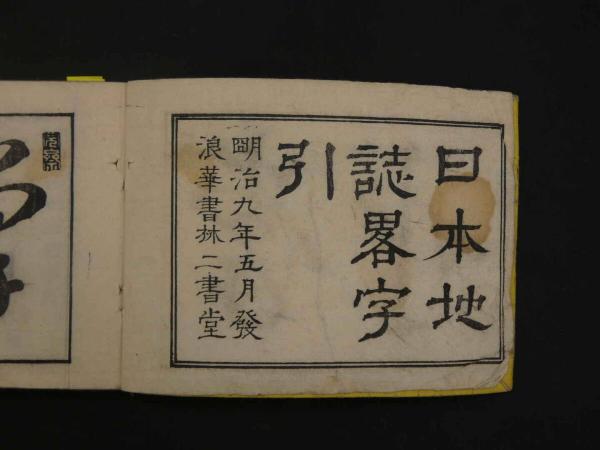 日本地
誌畧字
引
明治九年五月發
浪華書林二書堂